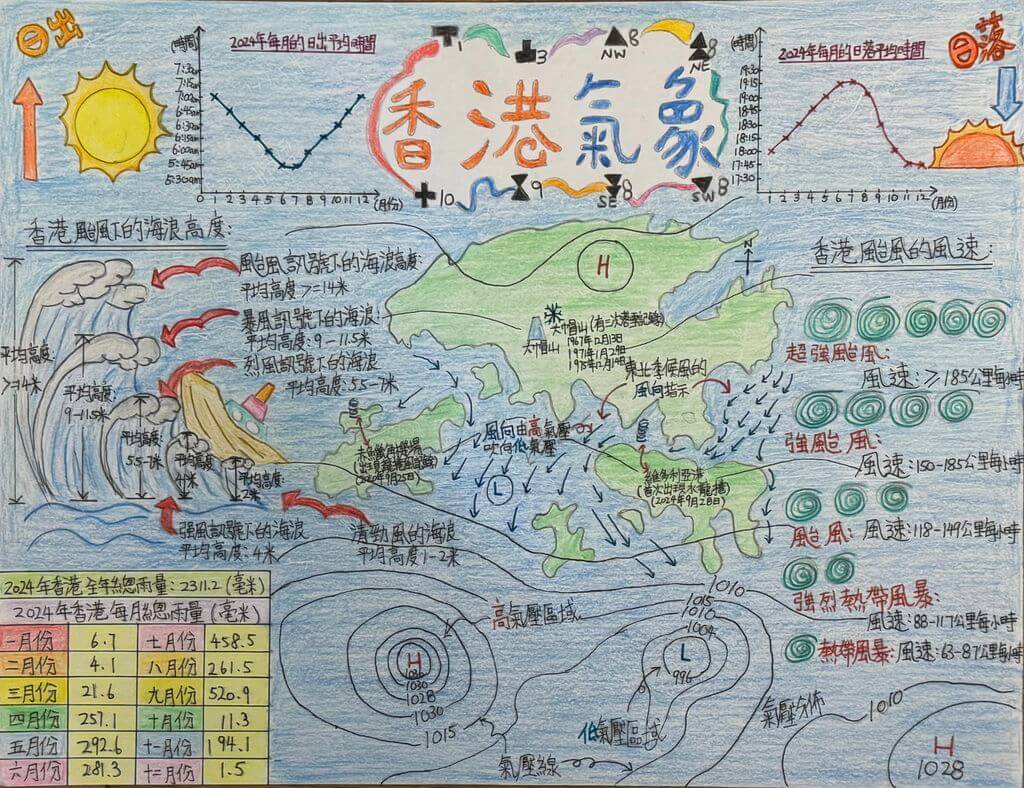 日出
(時間)
2024年每月的日出平均時間
7:30am
7:15am
7:00am
6:45am
6:30am
6:15am
6:00am
5:45am
5:30am
1 2 3 4 5 6 7 8 9 10 11 12
(月份)
1
3
8
NW
8
NE
香港氣象
10
9
8
SE
8
SW
(時間)
2024年每月的日落平均時間
19:30
19:15
19:00
18:45
18:30
18:15
18:00
17:45
17:30
1 2 3 4 5 6 7 8 9 10 11 12
(月份)
日落
香港颱風下的海浪高度:
颱風訊號下的海浪高度:
平均高度>=14米
暴風訊號下的海浪:
平均高度:9-11.5米
烈風訊號下的海浪
平均高度:5.5-7米
平均高度:
>=14米
平均高度:
9-11.5米
平均高度:
5.5-7米
平均高度:
4米
平均高度:
2米
强風訊號下的海浪
平均高度:4米
清勁風的海浪
平均高度1-2米
H
N
大帽山(有三次
1967年12月13日
1971年1月29日
1975年12月14日
大帽山
東北季候風的
風向指示
風向由高氣壓
吹向低氣壓
L
(2020年9月25日)
維多利亞港
(首次出現水龍捲)
(2024年9月28日)
香港颱風的風速:
超強颱風:
風速:≥185公里每小時
強颱風:
風速:150-185公里每小時
颱風:風速:118-149公里每小時
強烈熱帶風暴:
風速:88-117公里每小時
熱帶風暴:風速:63-87公里每小時
2024年香港全年總雨量:2311.2(毫米)
2024年香港每月總雨量(毫米)
一月份 6.7 七月份 458.5
二月份 4.1 八月份 261.5
三月份 21.6 九月份 520.9
四月份 257.1 十月份 11.3
五月份 292.6 十一月份 194.1
六月份 281.3 十二月份 1.5
高氣壓區域
H
1030
1028
1030
1015
1010
1015
1010
1004
L
996
低氣壓區域
氣壓線
氣壓分佈
1010
H
1028